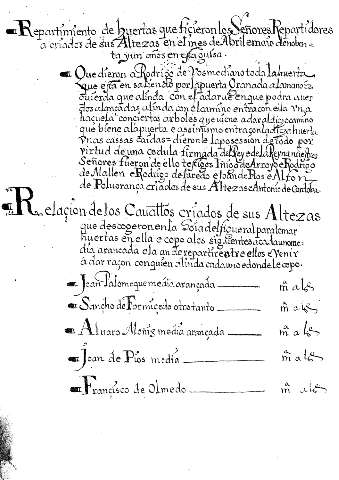 Repartimiento de huertas que ficieron los Señores Repartidores
a criados de sus Altezas en el mes de Abril e maio de noben-
ta y un años en esta guisa.
Que dieron a Rodrigo de Vosmediano toda la huerta
que está en saliendo por la puerta Granada a la mano iz-
quierda que alinda con el adarue en que podra auer
dos alancadas alinda con el camino e entra con ella una
haçuela con ciertos arboles que viene a dar al dicho camino
que biene a la puerta e assimismo entra con la dicha huerta
unas cassas caidas dieron le la possesion de todo por
virtud de una cedula firmada del Rey e de la Reyna nuestros
Señores fueron de ello testigos Iñigo de Arroyo e Rodrigo
de Mallen e Rodrigo de e Alfon
de criados de sus Altezas e Antonio de Cordoba
Relaçion de los Cauallos criados de sus Altezas
que descogeron en la del figueral para tomar
huertas en ella e cope a los siguientes a cada uno me-
dia arançada ela an de repartir entre ellos e venir
a dar raçon con quien alinda cada uno e donde le cope.
Jean Palomeque media arançada m a le
Sancho de otro tanto m a le
Alvaro media arançada m a le
Jean de Pios media m a le
Francisco de Olmedo m a le